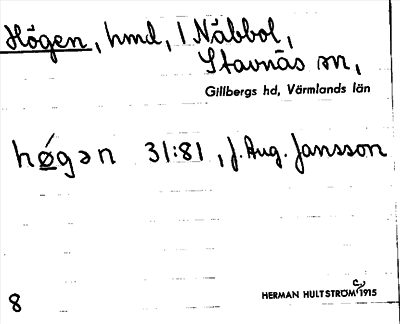 Högen, hmd, 1 Näbbol,
Stavnäs sn,
Gillbergs hd, Värmlands län
hǿgən 31:81, J. Aug. Jansson
HERMAN HULTSTRÖM 1915
8